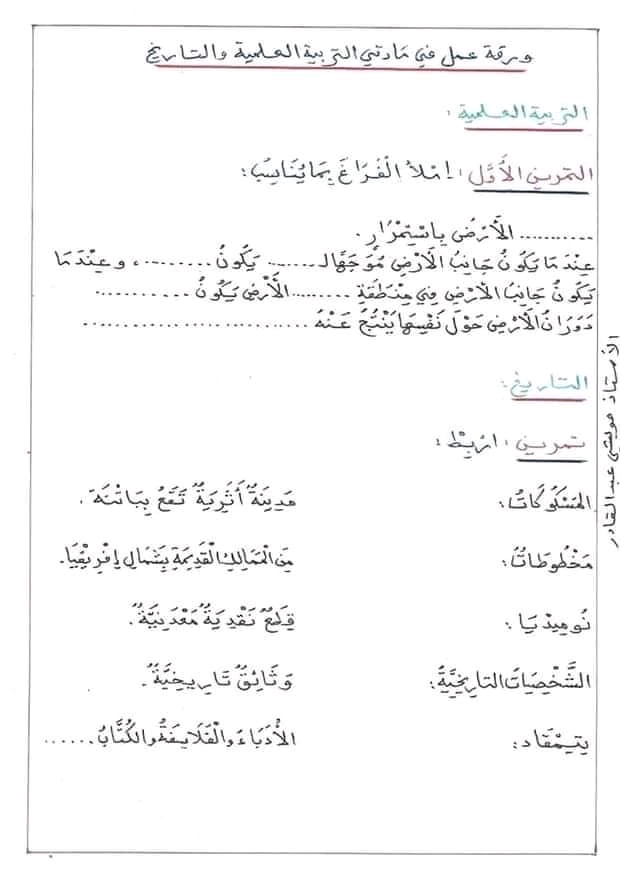 ورقة عمل في مادتي التربية العلمية والتاريخ
التربية العلمية :
التمرين الأَوَّل : اِمْلأُ الْفَرَاغَ بِمَا يُنَاسِبُ :
............ الأَرْضُ بِاسْتِمْرَارٍ .
عِنْدَمَا يَكُونُ جَانِبُ الأَرْضِ مُوَجَهًا لـ ........ يَكُونُ ........، وعِنْدَمَا
يَكُونُ جَانِبُ الأَرْضِ فِي مِنْطَقَةِ ......... الأَرْضِ يَكُونُ ...........
دَوَرَانُ الأَرْضِ حَوْلَ نَفْسِهَا يَنْتُجُ عَنْهُ ..................................
التاريخ :
تمرين : ارْبِطْ :
المَسْكُوكَاتُ : مَدِينَةٌ أَثَرِيَةٌ تَقَعُ بِبَاتْنَة .
مَخْطُوطَاتُ : مِنَ الْمَمَالِكِ الْقَدِيمَةِ بِشَمَالِ إفْرِيقْيَا.
نُومِيدْيَا : قِطَعٌ نَقْدِيَةٌ مَعْدَنِيَّةٌ .
الشَّخْصِيَاتُ التَارِيخِيَّةُ : وَثَائِقٌ تَارِيخِيَّةٌ .
تِيمْقَاد : الأُدَبَاءَ والْفَلَاسِفَةُ والكُتَّابُ ......
الأستاذ مويشي عبد القادر